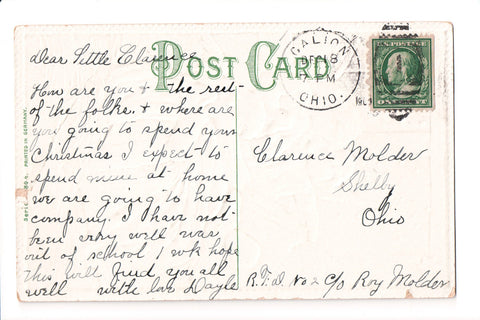 Dear Little Clarence
POST CARD
GALION
DEC 18
PM
OHIO.
How are you & the rest
of the folks. & where are
you going to spend your
Christmas I expect to
spend mine at home
we are going to have
company. I have not
been very well was
out of school 1 wk hope
This will find you all
well with love Dayle
Clarence Molder
Shelby
Ohio
R.F.D. No 2 C/o Roy Molder
PRINTED IN GERMANY.